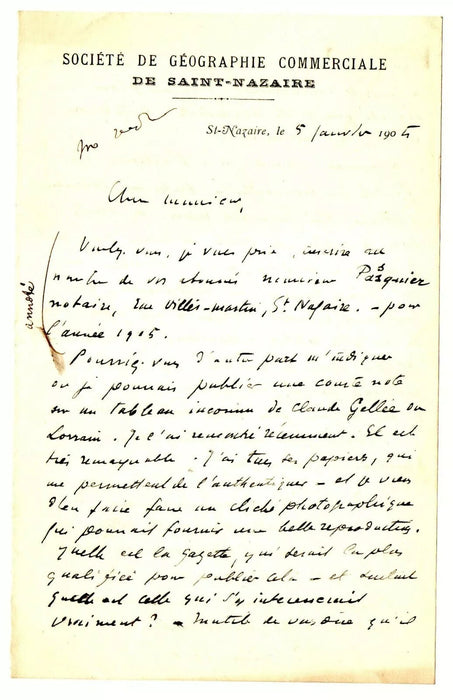 SOCIÉTÉ DE GÉOGRAPHIE COMMERCIALE
DE SAINT-NAZAIRE
St-Nazaire, le 5 janvier 1905
Cher monsieur,
Voulez vous, je vous prie, inscrire au
nombre de vos abonnés monsieur Pasquier
notaire, rue Villès-martin, St Nazaire. - pour
l'année 1905.
annoté
Pourriez vous d'autre part m'indiquer
où je pourrais publier une courte note
sur un tableau inconnu de Claude Gellée ou
Lorrain. Je l'ai rencontré récemment. Il est
très remarquable. J'ai tous ses papiers, qui
me permettent de l'authentiquer - et je viens
d'en faire faire un cliché photographique
qui pourrait fournir une belle reproduction.
Quelle est la gazette, qui serait la plus
qualifiée pour publier cela - et surtout
quelle est celle qui s'y intéresserait
vraiment ? - Inutile de vous dire qu'il